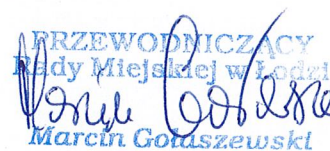 PRZEWODNICZĄCY
Rady Miejskiej w Łodzi
Marcin Gołaszewski